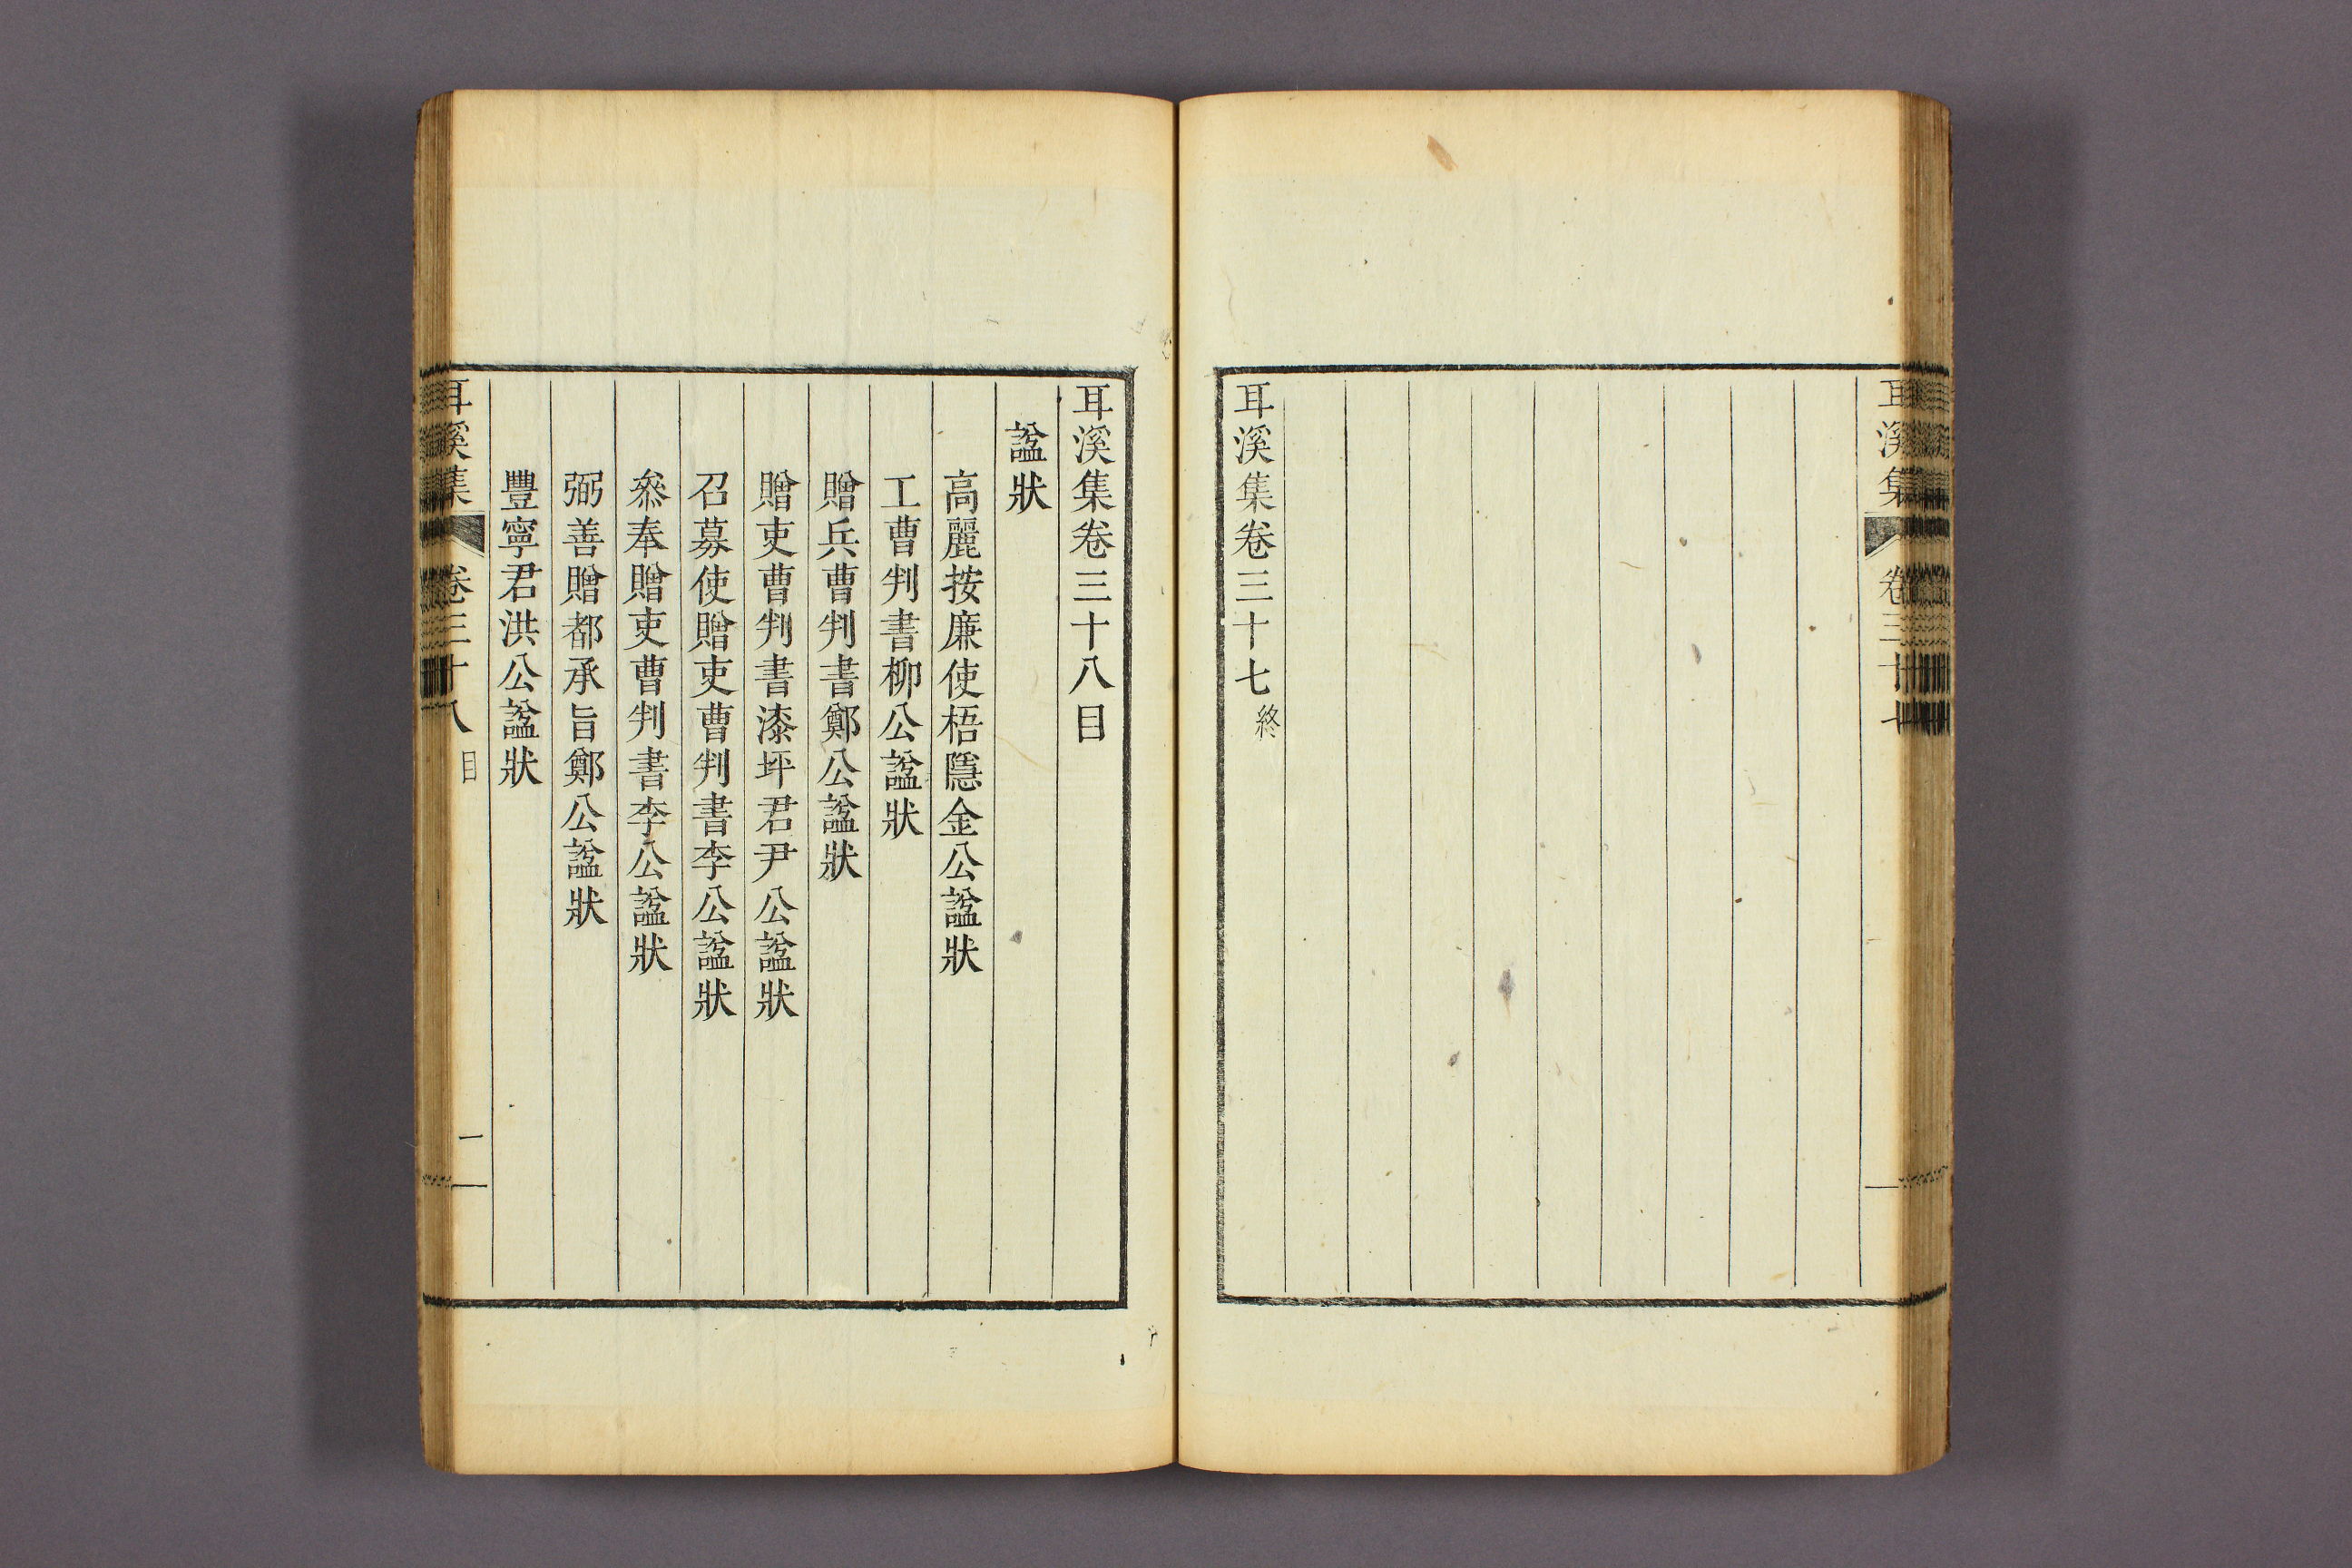 耳溪集
卷三十七
耳溪集卷三十七終
耳溪集卷三十八目
諡狀
高麗按廉使梧隱金公諡狀
工曹判書柳公諡狀
贈兵曹判書鄭公諡狀
贈吏曹判書漆坪君尹公諡狀
召募使贈吏曹判書李公諡狀
叅奉贈吏曹判書李公諡狀
弼善贈都承旨鄭公諡狀
豊寧君洪公諡狀
耳溪集
卷三十八目
一